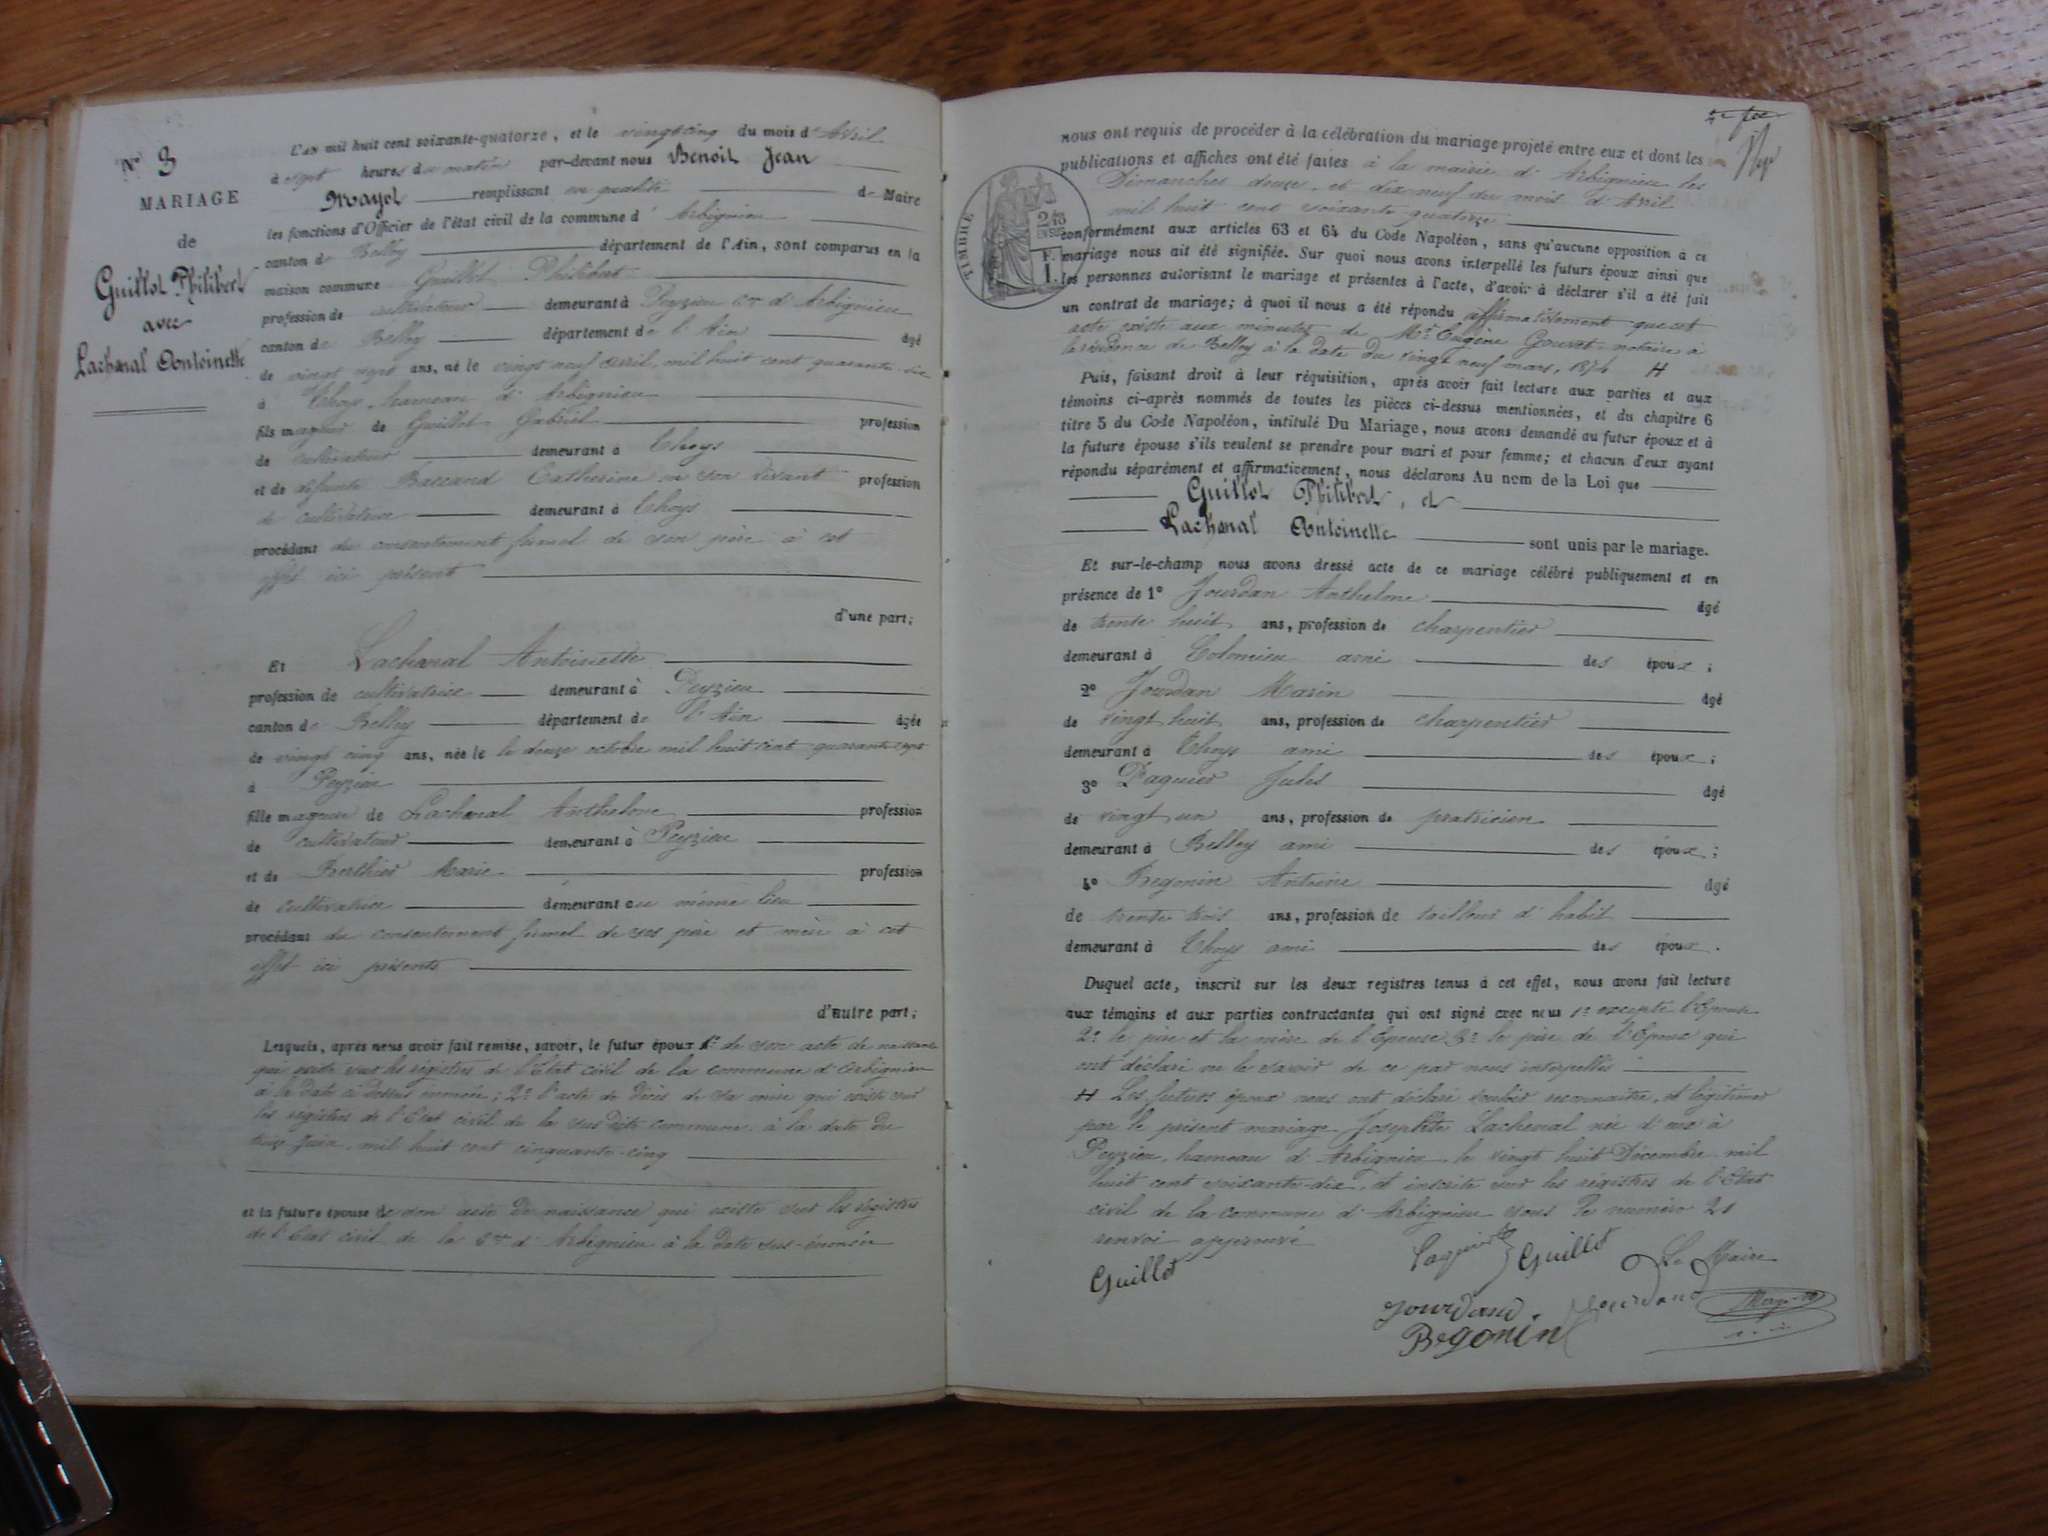 N° 3
MARIAGE
de
Guillot Philibert
avec
Lachenal Antoinette
L'an mil huit cent soixante-quatorze, et le vingt cinq du mois d'Avril
à sept heures du matin par-devant nous Benoit Jean
Mayet remplissant en qualité de Maire
les fonctions d'Officier de l'état civil de la commune d'Arbignieu
canton de Belley département de l'Ain, sont comparus en la
maison commune Guillot Philibert
profession de cultivateur demeurant à Peyzieu cne d'Arbignieu
canton de Belley département de l'Ain âgé
de vingt sept ans, né le vingt neuf avril, mil huit cent quarante-six
à Thoys, hameau d'Arbignieu
fils majeur de Guillot Gabriel profession
de cultivateur demeurant à Thoys
et de défunte Catherine en son vivant profession
de cultivatrice demeurant à Thoys
procédant du consentement formel de son père à cet
effet ici présent
d'une part;
Et Lachenal Antoinette
profession de cultivatrice demeurant à Peyzieu
canton de Belley département de l'Ain âgée
de vingt cinq ans, née le le douze octobre mil huit cent quarante-sept
à Peyzieu
fille majeure de Lachenal Anthelme profession
de cultivateur demeurant à Peyzieu
et de Berthier Marie profession
de cultivatrice demeurant au même lieu
procédant du consentement formel de ses père et mère à cet
effet ici présents
d'autre part;
Lesquels, après nous avoir fait remise, savoir, le futur époux 1° de son acte de naissance
qui existe sur les régistres de l'Etat civil de la commune d'Arbignieu
à la date ci dessus énoncée; 2° l'acte de décès de sa mère qui existe sur
les régistres de l'Etat civil de la susdite commune à la date du
Juin, mil huit cent cinquante-cinq
et la future épouse de son acte de naissance qui existe sur les régistres
de l'Etat civil de la Cne d'Arbignieu à la date sus-énoncée
nous ont requis de procéder à la célébration du mariage projeté entre eux et dont les
publications et affiches ont été faites à la mairie d'Arbignieu les
Dimanches douze, et dix-neuf du mois d'Avril
mil huit cent soixante quatorze
TIMBRE
conformément aux articles 63 et 64 du Code Napoléon, sans qu'aucune opposition à ce
mariage nous ait été signifiée. Sur quoi nous avons interpellé les futurs époux ainsi que
les personnes autorisant le mariage et présentes à l'acte, d'avoir à déclarer s'il a été fait
un contrat de mariage; à quoi il nous a été répondu affirmativement que cet
acte existe aux minutes de Mtre Eugène Gouvet notaire à
la résidence de Belley à la date du vingt neuf mars, 1874 H
Puis, faisant droit à leur réquisition, après avoir fait lecture aux parties et aux
témoins ci-après nommés de toutes les pièces ci-dessus mentionnées, et du chapitre 6
titre 5 du Code Napoléon, intitulé Du Mariage, nous avons demandé au futur époux et à
la future épouse s'ils veulent se prendre pour mari et pour femme; et chacun d'eux ayant
répondu séparément et affirmativement, nous déclarons Au nom de la Loi que
Guillot Philibert, et
Lachenal Antoinette
sont unis par le mariage.
Et sur-le-champ nous avons dressé acte de ce mariage célébré publiquement et en
présence de 1° Jourdan Anthelme âgé
de trente huit ans, profession de charpentier
demeurant à Colomieu ami des époux;
2° Jourdan Marin âgé
de vingt huit ans, profession de charpentier
demeurant à Thoys ami des époux;
3° Paquier Jules âgé
de vingt un ans, profession de praticien
demeurant à Belley ami des époux;
4° Begonin Antoine âgé
de trente trois ans, profession de tailleur d'habit
demeurant à Thoys ami des époux.
Duquel acte, inscrit sur les deux registres tenus à cet effet, nous avons fait lecture
aux témoins et aux parties contractantes qui ont signé avec nous 1° excepté l'Epouse
2° le père et la mère de l'Epouse 3° le père de l'Epoux qui
ont déclaré ne le savoir de ce par nous interpellés
H Les futurs époux nous ont déclaré vouloir reconnaître, et légitimer
par le présent mariage Josephte Lachenal née d'eux à
Peyzieu, hameau d'Arbignieu, le vingt huit Décembre mil
huit cent soixante-dix, et inscrite sur les régistres de l'Etat
civil de la commune d'Arbignieu sous le numéro 21
renvoi approuvé
Guillot
Guillot
Le Maire
Jourdan
Begonin